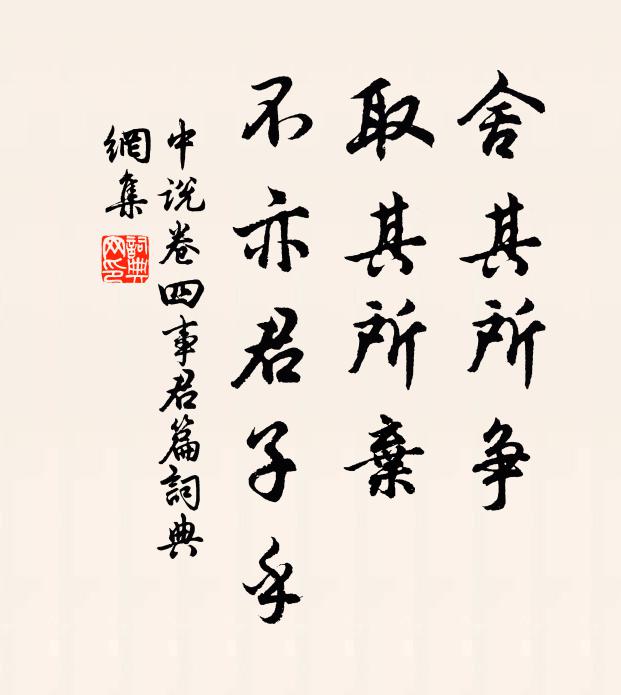 舍其所争
取其所棄
不亦君子乎
中说卷四事君篇詞典
網集
詞典
网印